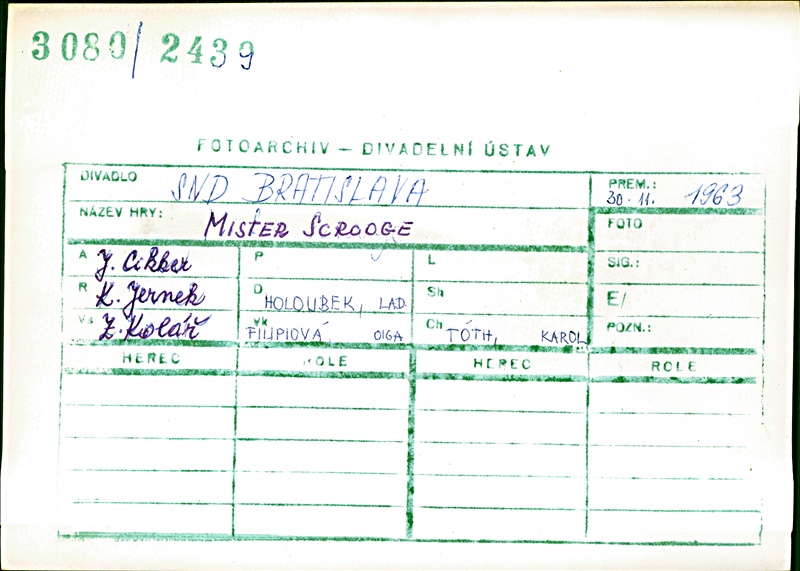 3080/2439
FOTOARCHIV – DIVADELNÍ ÚSTAV
DIVADLO SND BRATISLAVA
PREM.: 30. 11. 1963
NÁZEV HRY: MISTER SCROOGE
FOTO
A J. Cikker P L SIG.:
R K. Jernek D HOLOUBEK, LAD. Sh E/
Vs Z. Kolář Vk FILIPIOVÁ, OLGA Ch TÓTH, KAROL POZN.:
HEREC ROLE HEREC ROLE